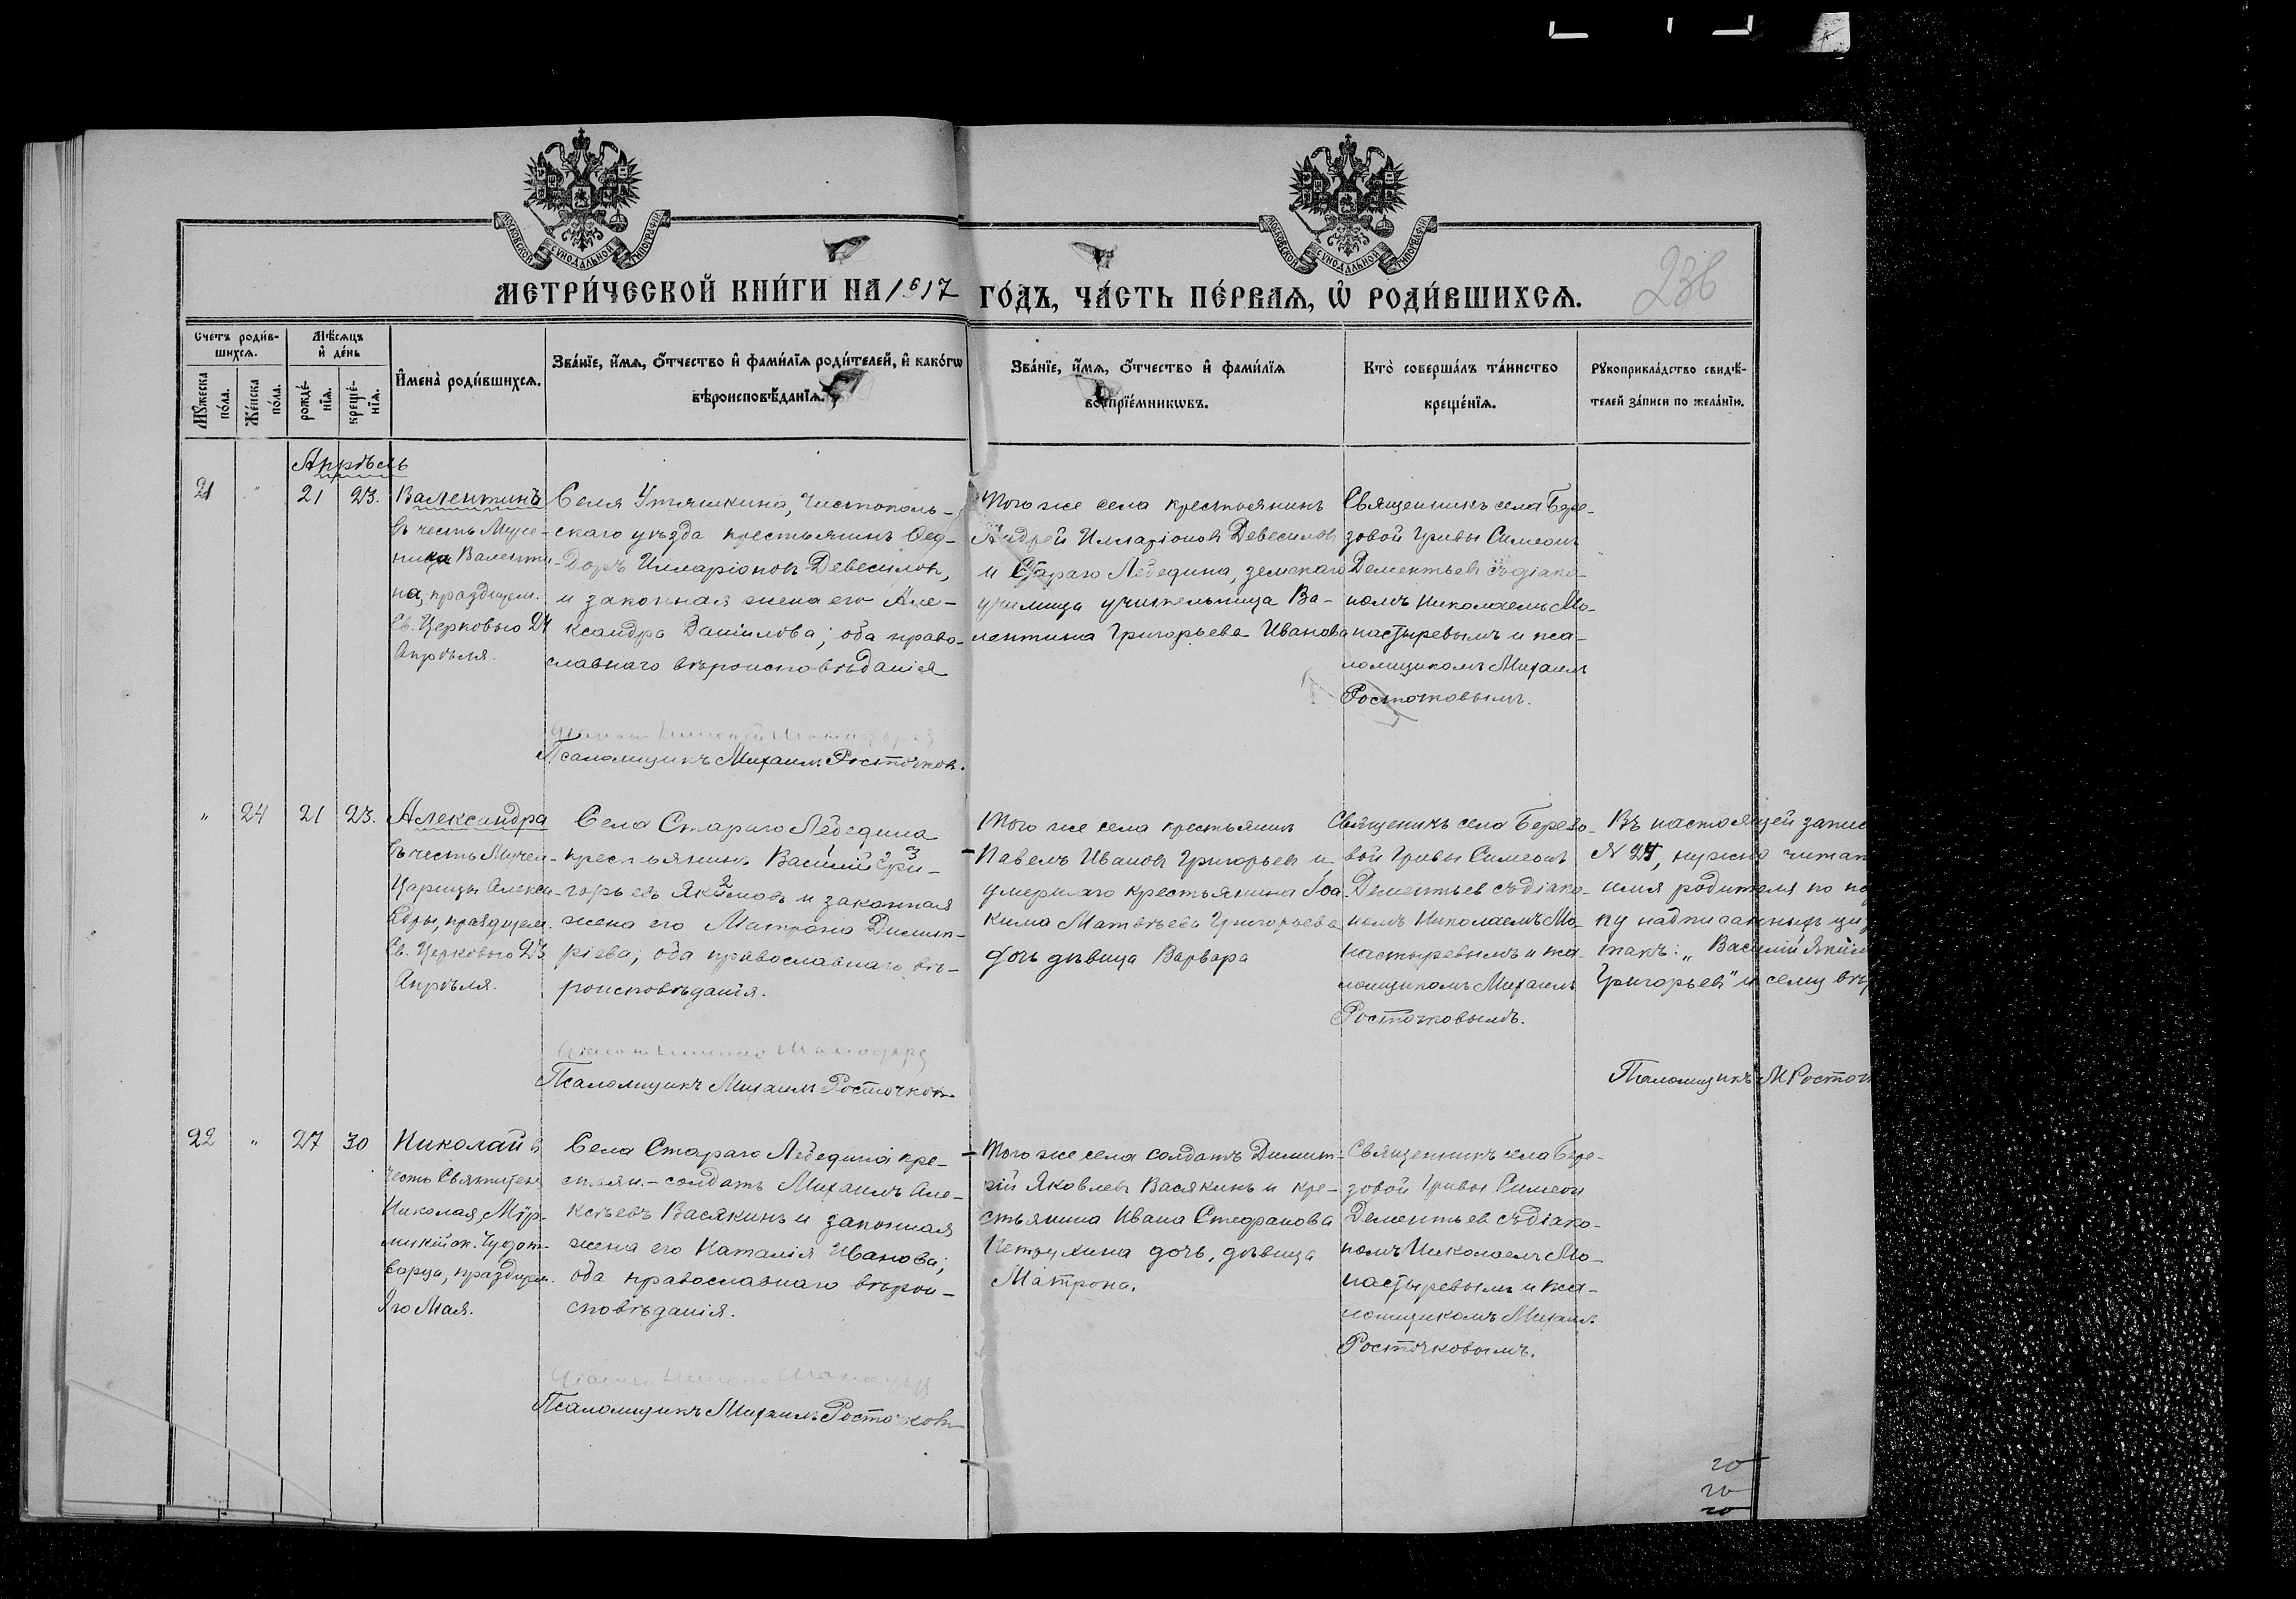 МОСКОВСКОЙ СѴНОДАЛЬНОЙ ТИПОГРАФІИ
МОСКОВСКОЙ СѴНОДАЛЬНОЙ ТИПОГРАФІИ
МЕТРИ́ЧЕСКОЙ КНИ́ГИ НА 1917 ГО́ДЪ, ЧА́СТЬ ПЕ́РВАѦ, Ѡ҆ РОДИ́ВШИХСѦ.
236
Счетъ роди́в-
шихсѧ.
Мѣ́сѧцъ
и҆ де́нь
Мꙋ́жеска
по́ла.
Же́нска
по́ла.
рожде́-
нїѧ.
креще́-
нїѧ.
И҆мена̀ роди́вшихсѧ.
Зва́нїе, и҆́мѧ, о҆́тчество и҆ фами́лїѧ роди́телей, и҆ како́гѡ
вѣроисповѣ́данїѧ.
Зва́нїе, и҆́мѧ, о҆́тчество и҆ фами́лїѧ
воспрїе́мникѡвъ.
Кто̀ соверша́лъ та́инство
креще́нїѧ.
Рꙋкоприкла́дство свидѣ́-
телей за́писи по жела́нїю.
Апрѣль
21 " 21 23.
Валентинъ
въ честь Муче-
ника Валенти-
на, празднуем.
Св. Церковью 24
Апрѣля.
Села Утяшкина, Чистополь-
скаго уѣзда крестьянинъ Ѳео-
доръ Илларіоновъ Девесиловъ,
и законная жена его Але-
ксандра Даніилова; оба право-
славнаго вѣроисповѣданія
Псаломщикъ Михаилъ Росточковъ.
Того же села крестьянинъ
Андрей Илларіоновъ Девесиловъ
и Стараго Лебедина, земскаго
училища учительница Ва-
лентина Григорьева Иванова
Священникъ села Бере-
зовой Гривы Симеонъ
Дементьевъ съ діако-
номъ Николаемъ Мо-
настыревымъ и пса-
ломщикомъ Михаилъ
Росточковымъ.
" 24 21 23.
Александра
въ честь Мучен-
Царицы Алекса-
ндры, празднуем.
Св. Церковью 23
Апрѣля.
Села Стараго Лебедина
крестьянинъ Василій Гри-
3
горьевъ Якимовъ и законная
2
жена его Матрона Димит-
ріева; оба православнаго вѣ-
роисповѣданія.
Псаломщикъ Михаилъ Росточковъ
Того же села крестьянинъ
Павелъ Ивановъ Григорьевъ и
умершаго крестьянина Іоа-
кима Матвѣева Григорьева
дочь дѣвица Варвара
Священикъ села Березо-
вой Гривы Симеонъ
Дементьев съ діако-
номъ Николаемъ Мо-
настыревымъ и пса-
ломщикомъ Михаилъ
Росточковымъ.
Въ настоящей запис
№ 24, нужно читат
имя родителя по по
ку надписанныхъ ци
такъ: „Василій Яким
Григорьевъ" и сему вѣр
Псаломщикъ М Росточ
22 " 27 30
Николай в
честь Святителя
Николая, Мѵр-
ликійск. Чудот-
ворца, празднуем.
9го Мая.
Села Стараго Лебедина кре-
стьян.-солдатъ Михаилъ Але-
ксѣевъ Васякинъ и законная
жена его Наталія Иванова;
оба православнаго вѣрои-
сповѣданія.
Псаломщикъ Михаилъ Росточковъ
Того же села солдатъ Димит-
рій Яковлевъ Васякинъ и кре-
стьянина Ивана Стефанова
Петрухина дочь, дѣвица
Матрона.
Священникъ села Бере-
зовой Гривы Симеон
Дементьевъ съ діако-
номъ Николаемъ Мо-
настыревымъ и пса-
ломщикомъ Михаил.
Росточковымъ.